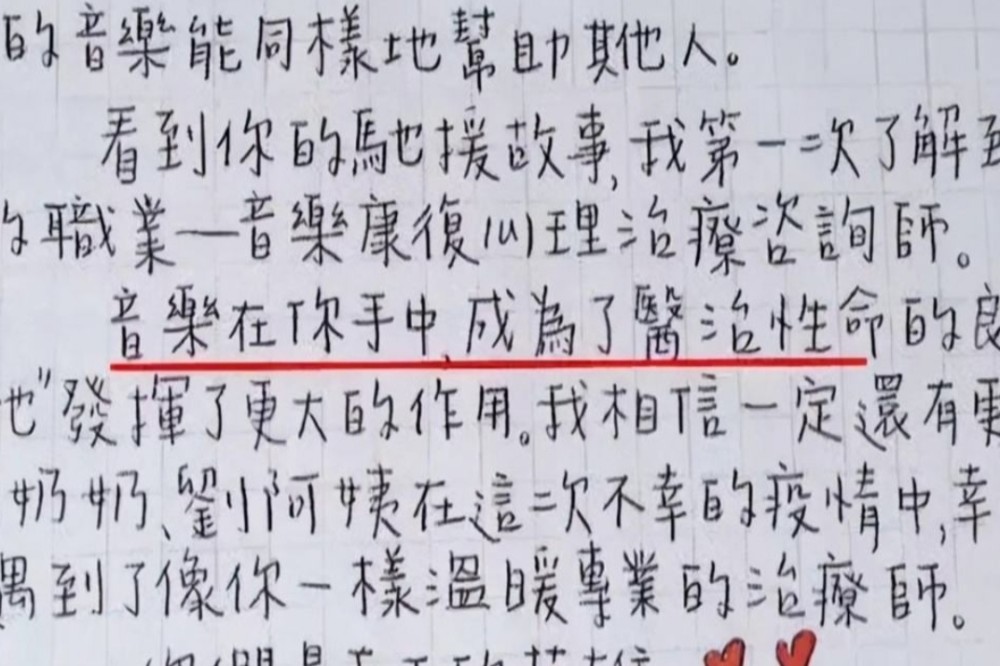 的音樂能同樣地幫助其他人。
看到你的馳援故事,我第一次了解到
的職業—音樂康復心理治療咨詢師。
音樂在你手中,成為了醫治性命的良
也”發揮了更大的作用。我相信一定還有更
奶奶、劉阿姨在這次不幸的疫情中,幸
遇到了像你一樣溫暖專業的治療師。